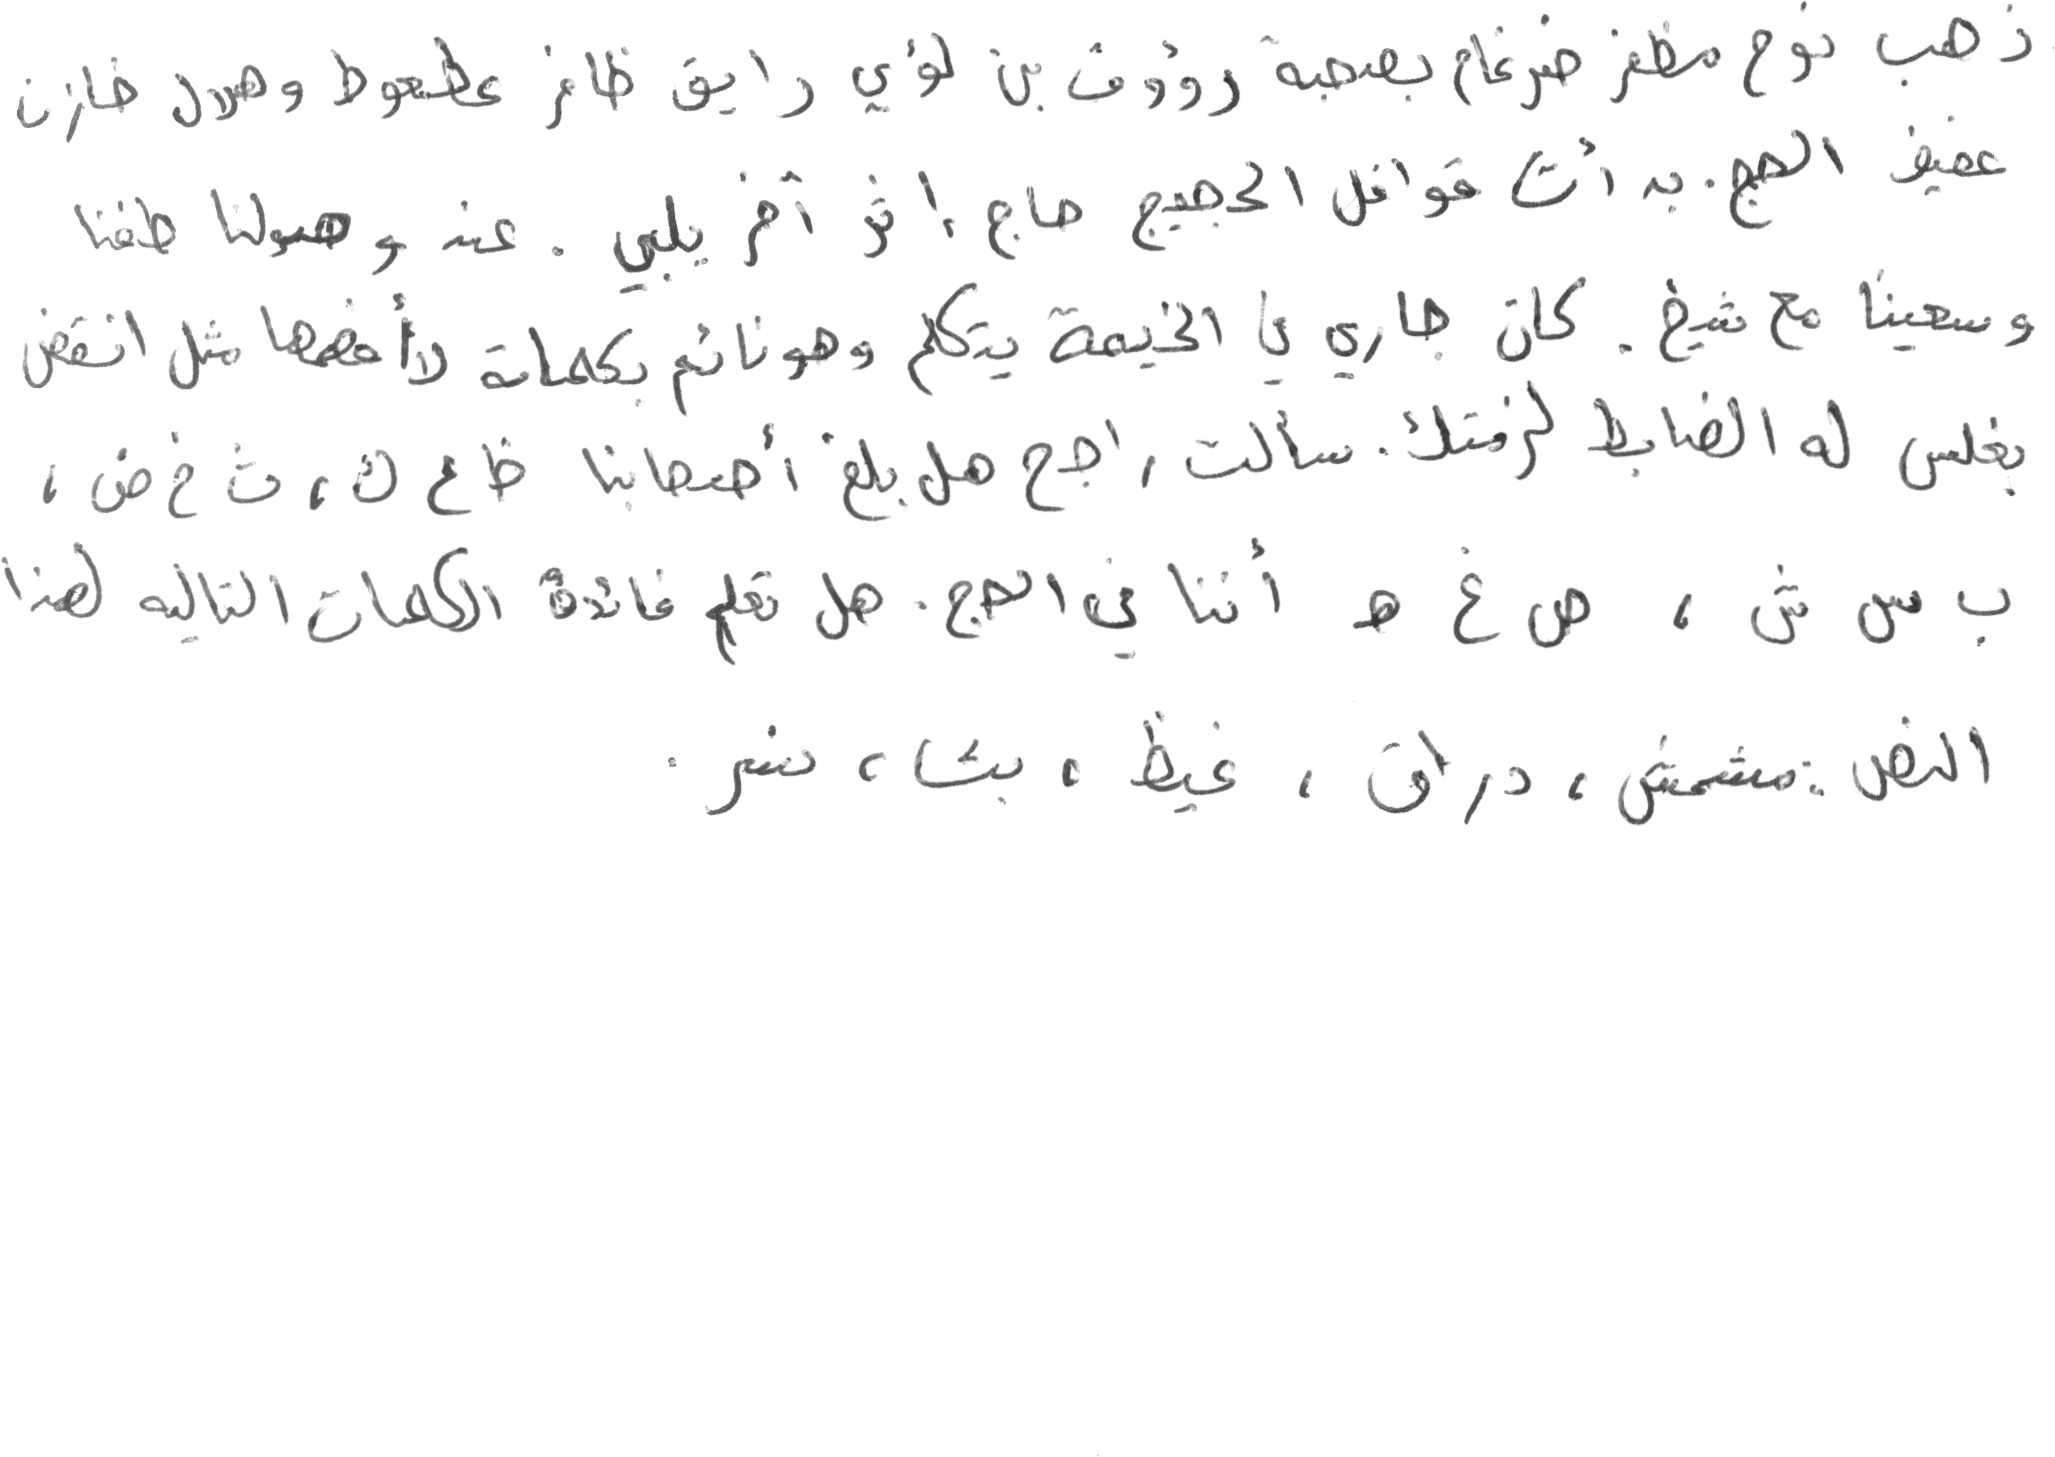 ذهب نوح مظفر ضرغام بصحبة رؤوف بن لؤي رايق ظافر عطعوط وهلال خازن
عفيف الحج. بدأت قوافل الحجيج حاج إثر آخر يلبي. عند وصولنا طفنا
وسعينا مع شيخ. كان جاري في الخيمة يتكلم وهو نائم بكلمات لا أفهمها مثل انقض
بغلس له الضابط لزمتك. سألت راجح هل بلغ أصحابنا ظ ع ك، ث خ ض،
ب س ش، ص غ ه أننا في الحج. هل تعلم فائدة الكلمات التاليه لهذا
النص: مشمش، دراق، غيظ، بشاء، نسر.